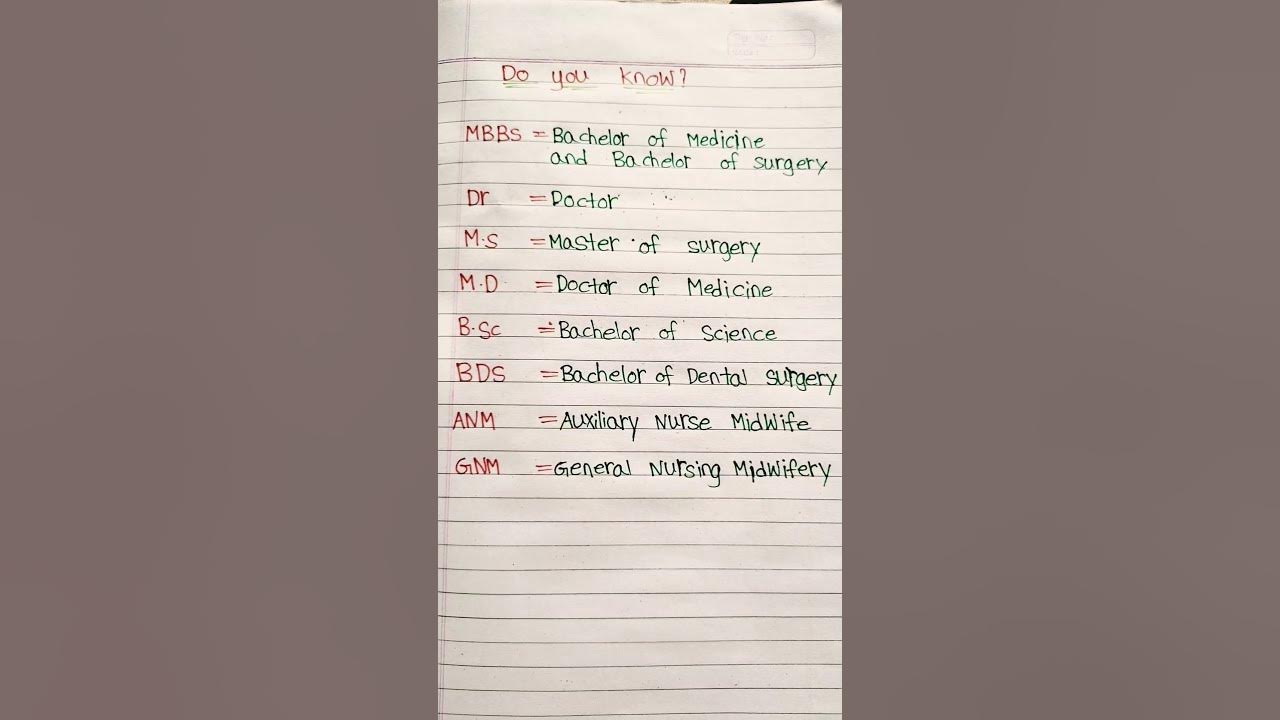 Do you know?
MBBS = Bachelor of Medicine
and Bachelor of surgery
Dr = Doctor
M.S = Master of surgery
M.D = Doctor of Medicine
B.Sc = Bachelor of Science
BDS = Bachelor of Dental surgery
ANM = Auxiliary Nurse Midwife
GNM = General Nursing Midwifery